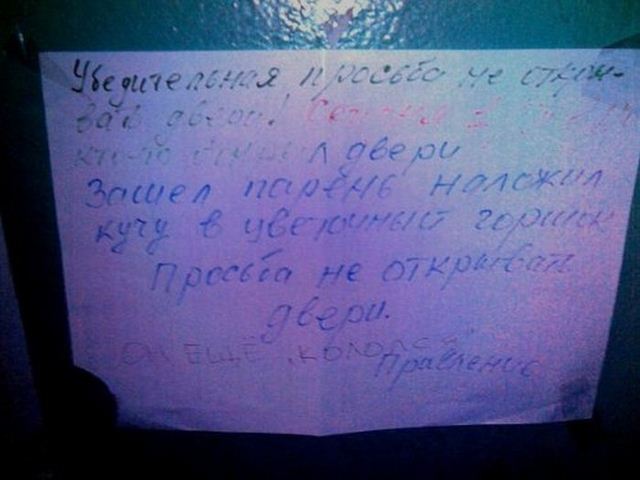 Убедительная просьба не откры-
вать двери! Сегодня
кто-то открыл двери
Зашел парень наложил
кучу в цветочный горшок
Просьба не открывать
двери.
Он ЕЩЁ "КОЛОЛСЯ"
Правление